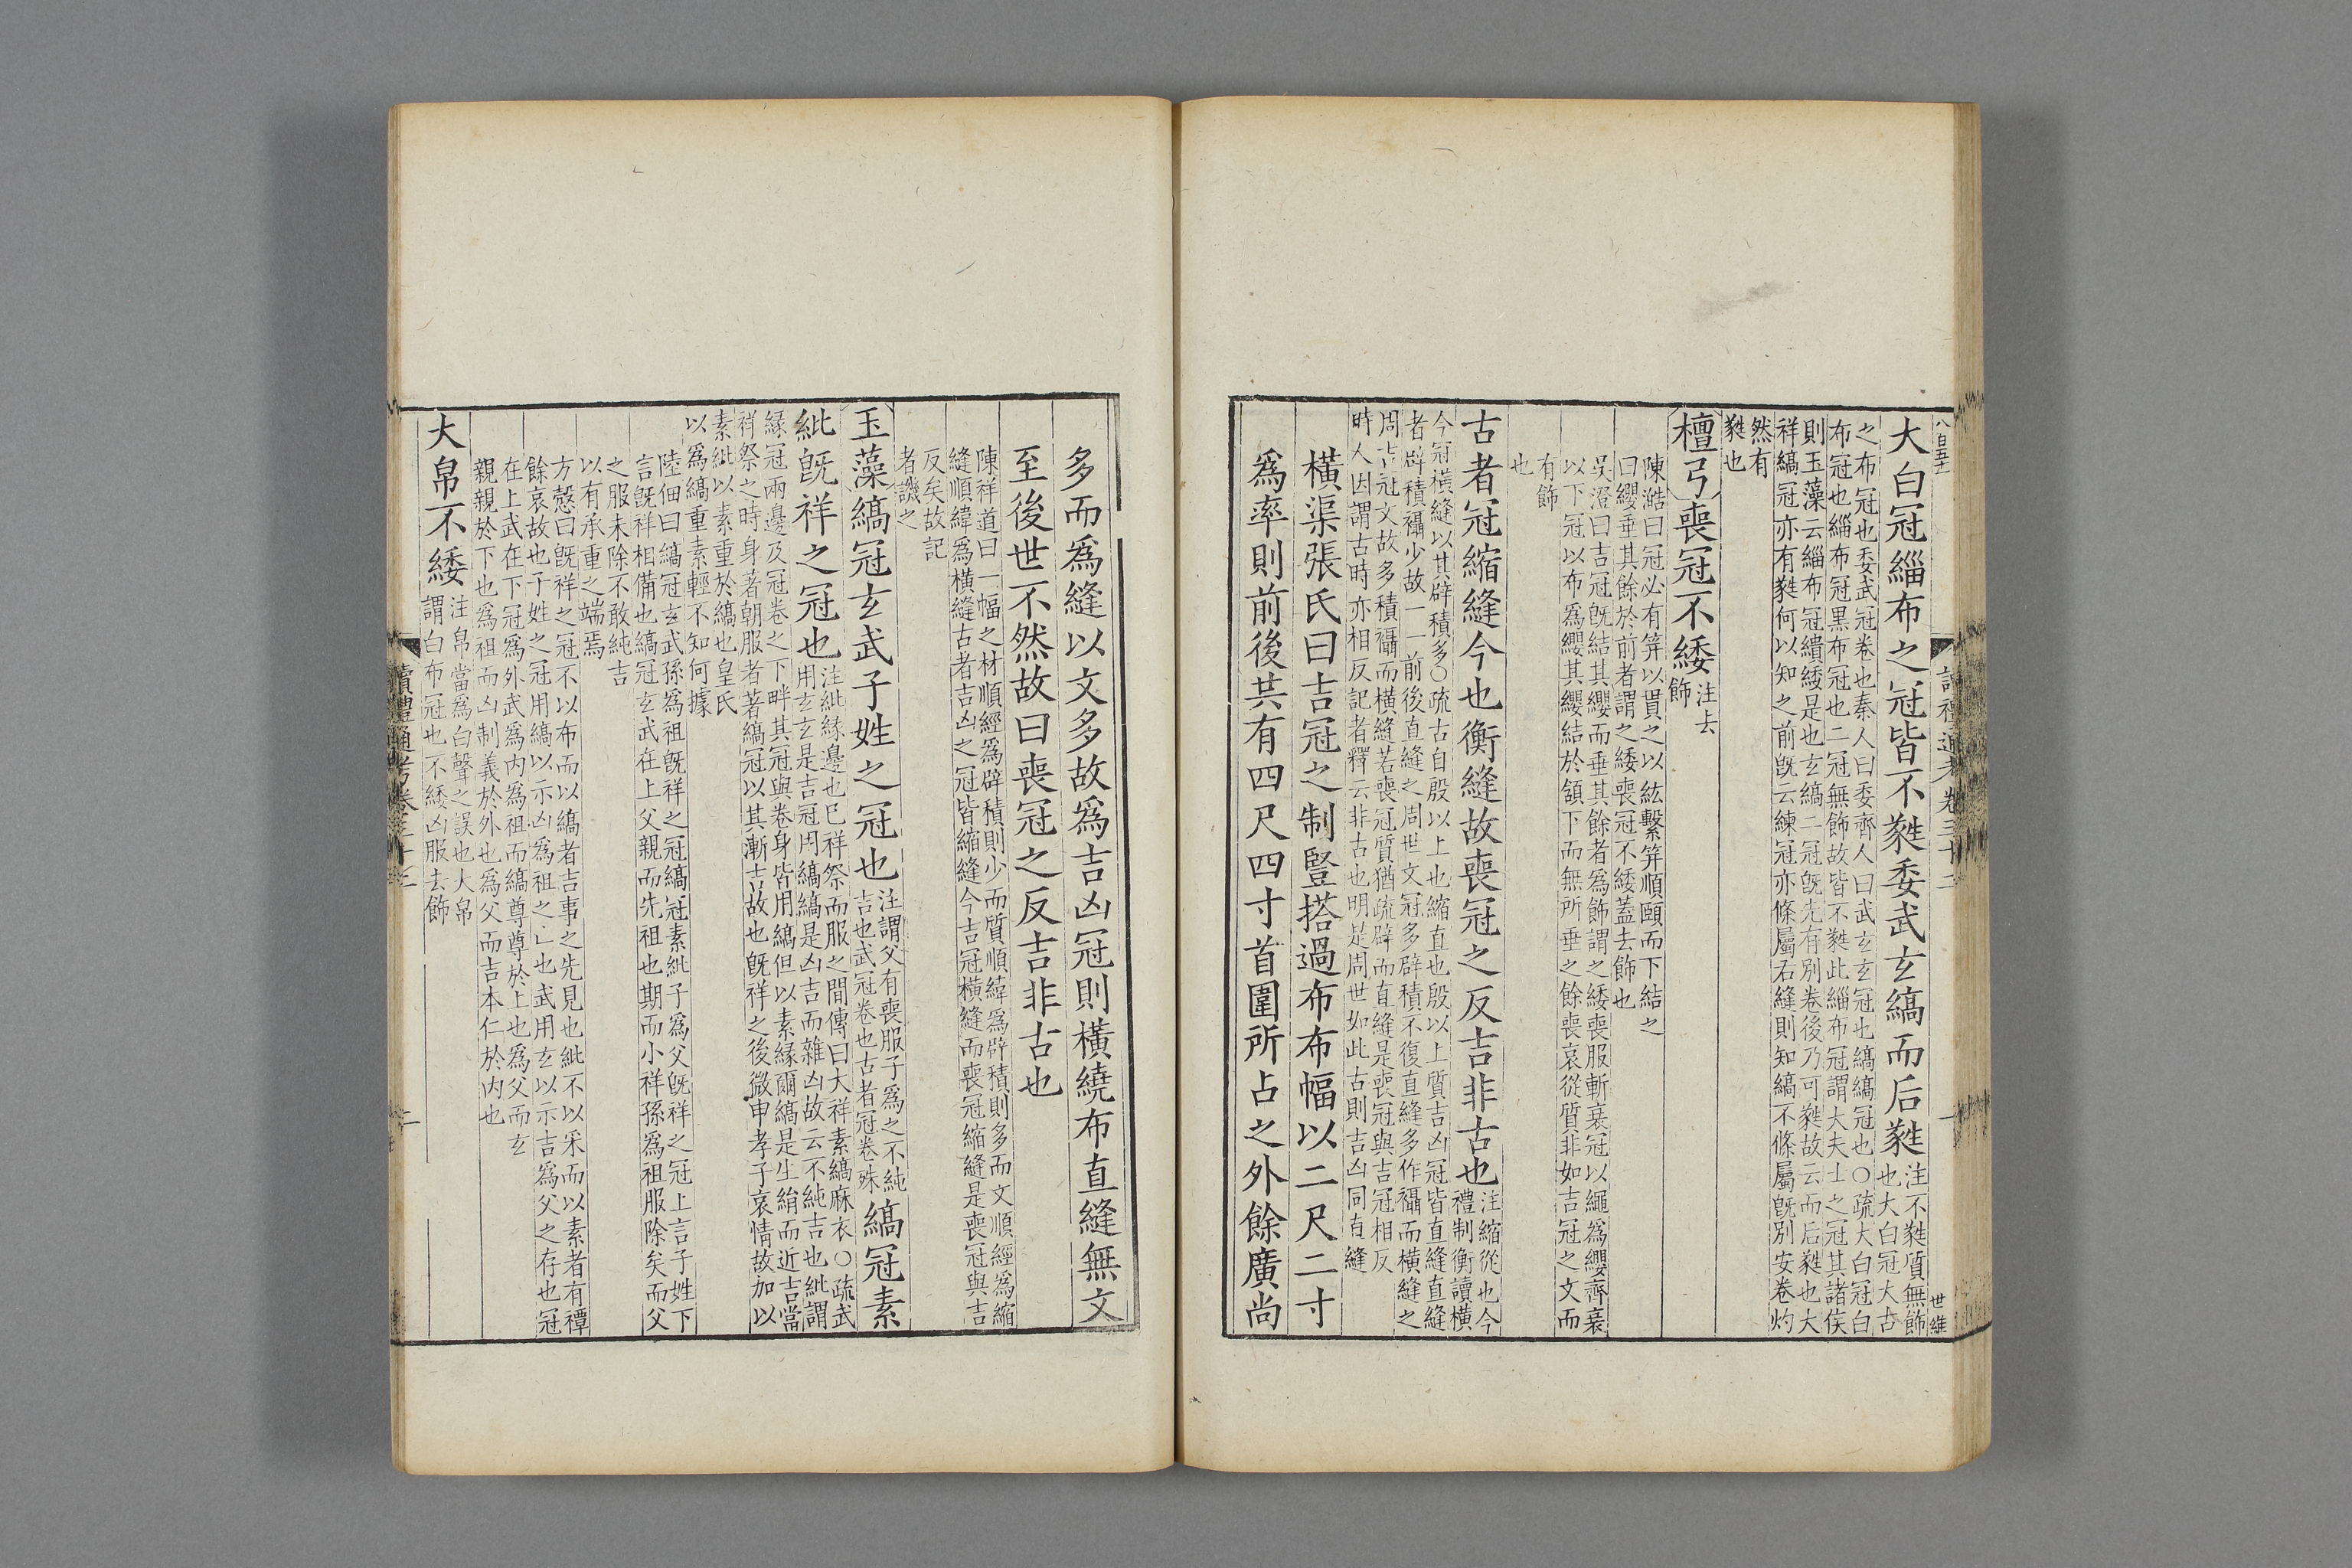 八百五十
大白冠緇布之冠皆不蕤委武玄縞而后蕤
注不蕤質無飾
也大白冠大古
之布冠也委武冠卷也秦人曰委齊人曰武玄玄冠也縞縞冠也○疏大白冠白
布冠也緇布冠黑布冠也二冠無飾故皆不蕤此緇布冠謂大夫士之冠其諸侯
則玉藻云緇布冠繢緌是也玄縞二冠旣先有別卷後乃可蕤故云而后蕤也大
祥縞冠亦有蕤何以知之前旣云練冠亦條屬右縫則知縞不條屬旣別安卷灼
然有
蕤也
檀弓喪冠不緌
注去
飾
陳澔曰冠必有筓以貫之以紘繫筓順頤而下結之
曰纓垂其餘於前者謂之緌喪冠不緌蓋去飾也
吳澄曰吉冠旣結其纓而垂其餘者爲飾謂之緌喪服斬衰冠以繩爲纓齊衰
以下冠以布爲纓其纓結於頷下而無所垂之餘喪哀從質非如吉冠之文而
有飾
也
古者冠縮縫今也衡縫故喪冠之反吉非古也
注縮從也今
禮制衡讀橫
今冠橫縫以其辟積多○疏古自殷以上也縮直也殷以上質吉凶冠皆直縫直縫
者辟積襵少故一一前後直縫之周世文冠多辟積不復直縫多作襵而橫縫之
周吉冠文故多積襵而橫縫若喪冠質猶疏辟而直縫是喪冠與吉冠相反
時人因謂古時亦相反記者釋云非古也明是周世如此古則吉凶同直縫
橫渠張氏曰吉冠之制豎搭過布布幅以二尺二寸
爲率則前後共有四尺四寸首圍所占之外餘廣尚
讀禮通考卷三十二
一
世維
多而爲縫以文多故爲吉凶冠則橫繞布直縫無文
至後世不然故曰喪冠之反吉非古也
陳祥道曰一幅之材順經爲辟積則少而質順緯爲辟積則多而文順經爲縮
縫順緯爲橫縫古者吉凶之冠皆縮縫今吉冠橫縫而喪冠縮縫是喪冠與吉
反矣故記
者譏之
玉藻縞冠玄武子姓之冠也
注謂父有喪服子爲之不純
吉也武冠卷也古者冠卷殊
縞冠素
紕旣祥之冠也
注紕緣邊也已祥祭而服之閒傳曰大祥素縞麻衣○疏武
用玄玄是吉冠用縞縞是凶吉而雜凶故云不純吉也紕謂
緣冠兩邊及冠卷之下畔其冠與卷身皆用縞但以素緣爾縞是生絹而近吉當
祥祭之時身著朝服者著縞冠以其漸吉故也旣祥之後微申孝子哀情故加以
素紕以素重於縞也皇氏
以爲縞重素輕不知何據
陸佃曰縞冠玄武孫爲祖旣祥之冠縞冠素紕子爲父旣祥之冠上言子姓下
言旣祥相備也縞冠玄武在上父親而先祖也期而小祥孫爲祖服除矣而父
之服未除不敢純吉
以有承重之端焉
方慤曰旣祥之冠不以布而以縞者吉事之先見也紕不以采而以素者有禫
餘哀故也子姓之冠用縞以示凶爲祖之亡也武用玄以示吉爲父之存也冠
在上武在下冠爲外武爲内爲祖而縞尊尊於上也爲父而玄
親親於下也爲祖而凶制義於外也爲父而吉本仁於内也
大帛不緌
注帛當爲白聲之誤也大帛
謂白布冠也不緌凶服去飾
讀禮通考卷三十二
二